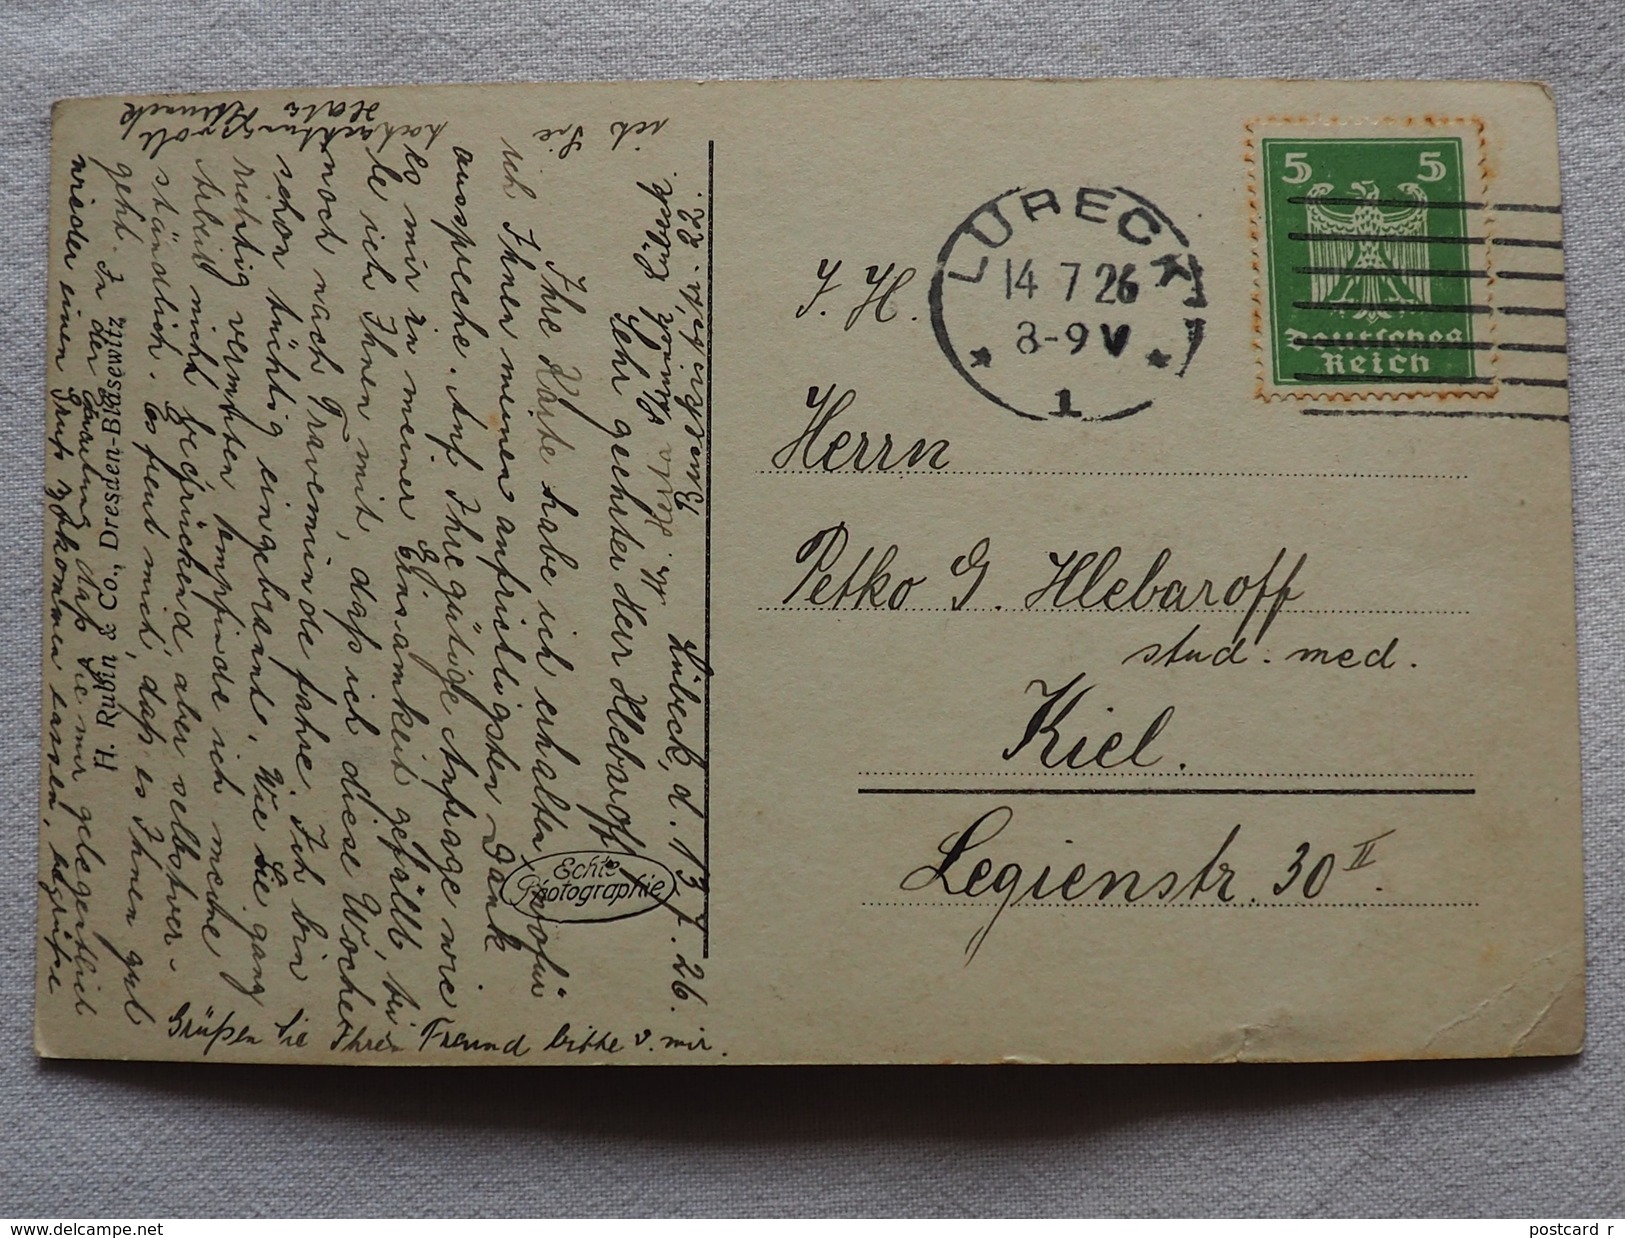 Lübeck, d. 13.7.26.
Sehr geehrter Herr Hlebaroff!
Ihre Karte habe ich erhalten wofür
ich Ihnen meinen aufrichtigsten Dank
ausspreche. Auf Ihre gütige Anfrage wie
es mir in meiner Einsamkeit gefällt, tei
le ich Ihnen mit, daß ich diese Woche
noch nach Travemünde fahre. Ich bin
schon tüchtig eingebrannt. Wie Sie ganz
richtig vermuten empfinde ich meine
Arbeit nicht bedrückend aber selbstver-
ständlich. Es freut mich, daß es Ihnen gut
geht. In der Erwartung daß Sie mir gelegentlich
wieder einen Gruß zukommen lassen, begrüße
ich Sie
hochachtungsvoll
Grüßen Sie Ihren Freund bitte v. mir.
Echte
Photographie
H. Rubin & Co., Dresden-Blasewitz
LÜBECK
14 7 26
8-9 V
1
5 5
Deutsches
Reich
J. H.
Herrn
Petko G. Hlebaroff
stud. med.
Kiel.
Legienstr. 30 II.
postcard r
delcampe.net